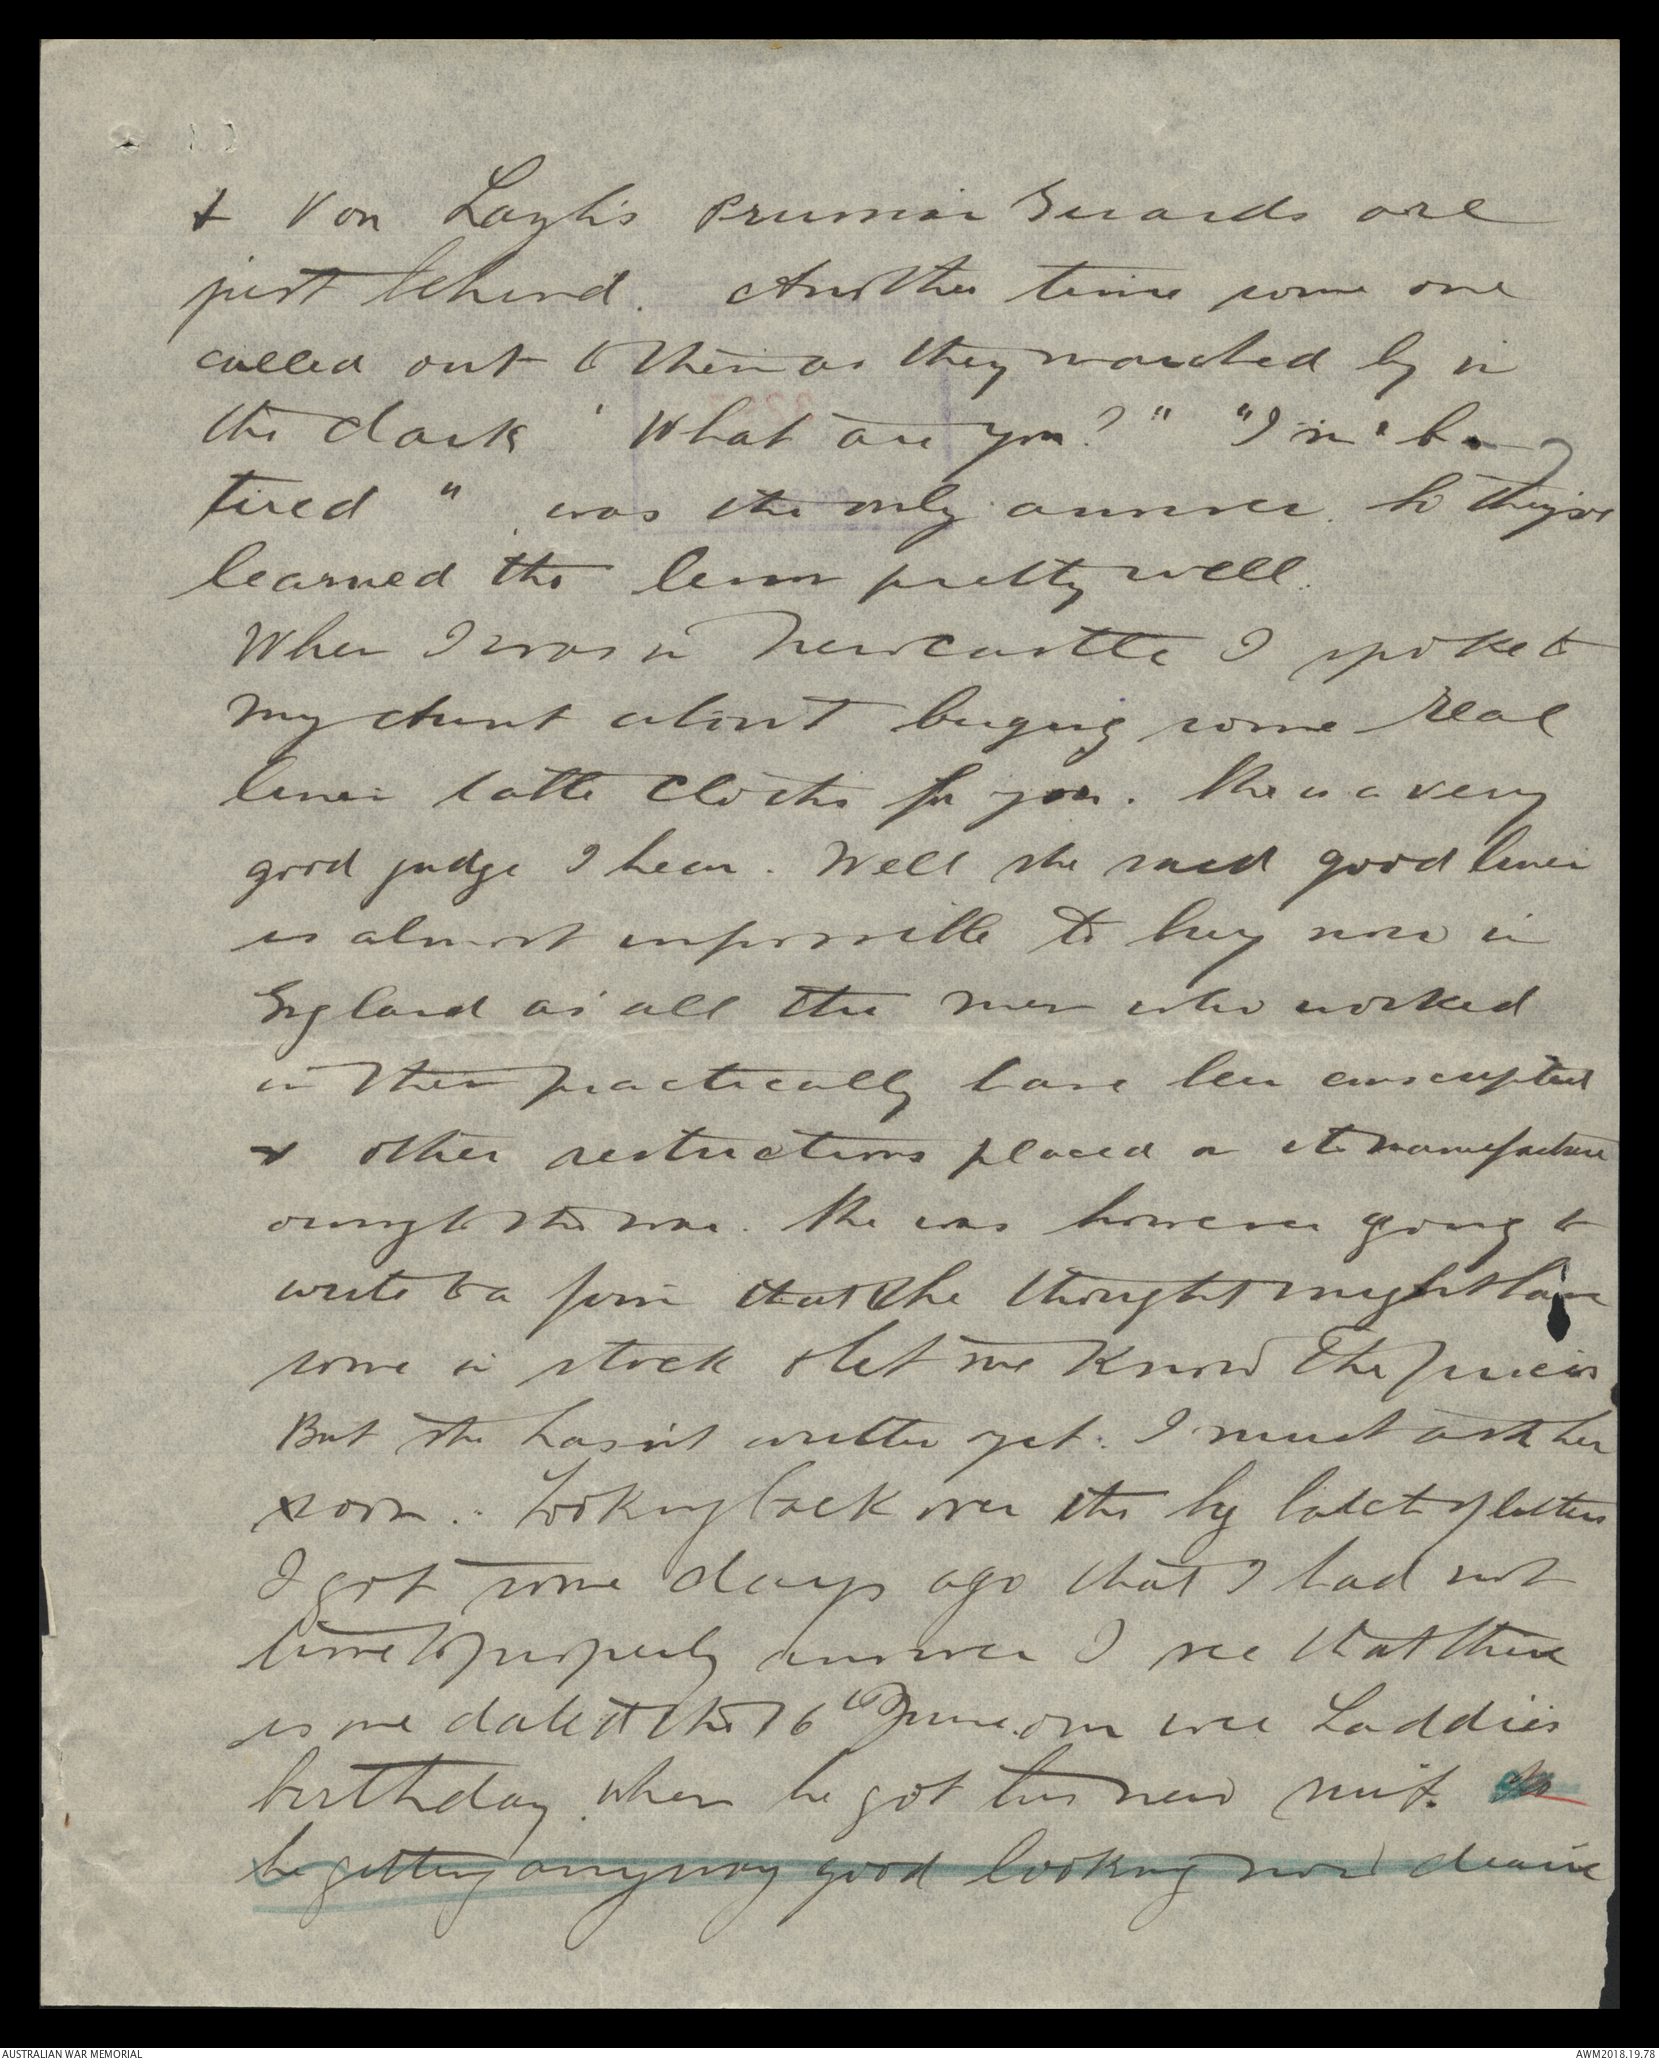 & Von Prussian Guards are
just behind. Another time some one
called out to them as they marched by in
the dark "What are you?" "I'm b
tired" was the only answer. So they've
learned the lesson pretty well.
When I was in Newcastle I spoke to
my Aunt about buying some real
linen table cloths for you. She is a very
good judge I hear. Well she said good linen
is almost impossible to buy now in
England as all the men who worked
in them practically have been conscripted
& other restrictions placed on its manufacture
owing to the war. She was however going to
write to a firm that she thought might have
some in stock & let me know the prices
But she hasn't written yet. I must ask her
soon. Looking back over the big batch of letters
I got some days ago that I had not
time to properly answer I see that there
is one dated the 16th June, our wee Laddie's
birthday when he got his new suit. Is
he getting anyway good looking now dearie
AUSTRALIAN WAR MEMORIAL
AWM2018.19.78